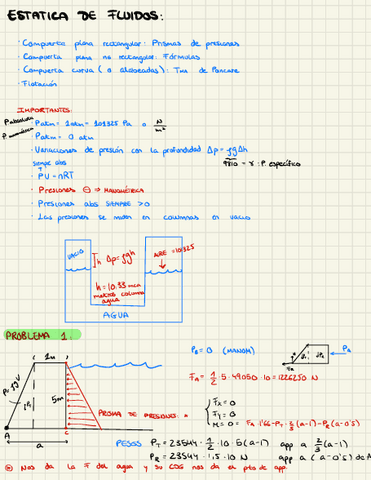 ESTATICA DE FLUIDOS:
· Compuerta plana rectangular: Prismas de presiones
· Compuerta plana no rectangular: Fórmulas
· Compuerta curva ( o alabeadas):
· Flotación
IMPORTANTES:
P absoluta · Patm = 1atm = 101325 Pa o N/m²
P manométrica · Patm = 0 atm
· Variaciones de presión con la profundidad Δp = ρgΔh
siempre abs
P. específico
· PV = nRT
· Presiones ⊖ ⇒ MANOMÉTRICA
· Presiones abs SIEMPRE >0
· Las presiones se miden en columnas en vacío
VACÍO
h Δp = ρgh
AIRE = 101325
h = 10.33 mca
metros columna
agua
AGUA
PROBLEMA 1:
1m
5m
A
a
C
PRISMA DE PRESIONES
P₀ = 0 (MANOM)
Fₐ = 1/2 · 5 · 49050 · 10 = 1226250 N
Fx = 0
Fy = 0
M = 0 =
PESOS P_T = 23544 · 1/2 · 10 · 5 (a-1) app a 2/3 (a-1)
app a (a-0'5) de A
Nos da la F del agua y su CDG nos da el pto de app